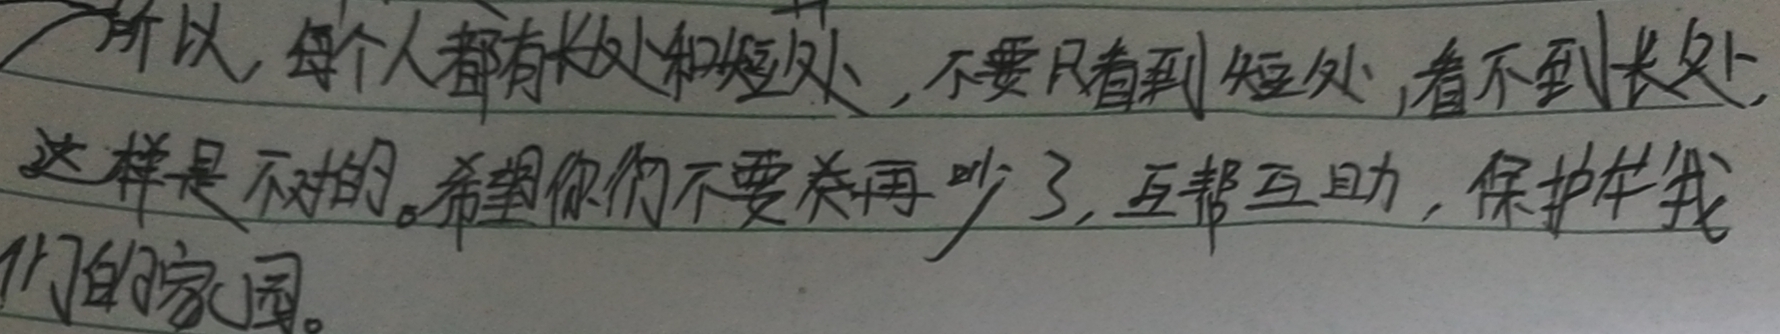 所以,每个人都有长处和短处,不要只看到短处,看不到长处,
这样是不对的。希望你们不要再吵了,互帮互助,保护我
们的家园。